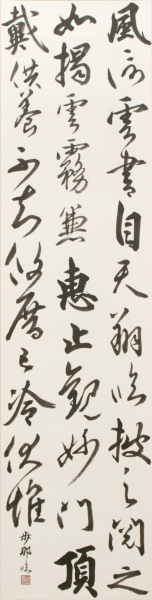 風信雲書自天翔臨披之閱之
如揭雲霧兼惠止觀妙門頂
戴供養不知攸厝已冷伏惟